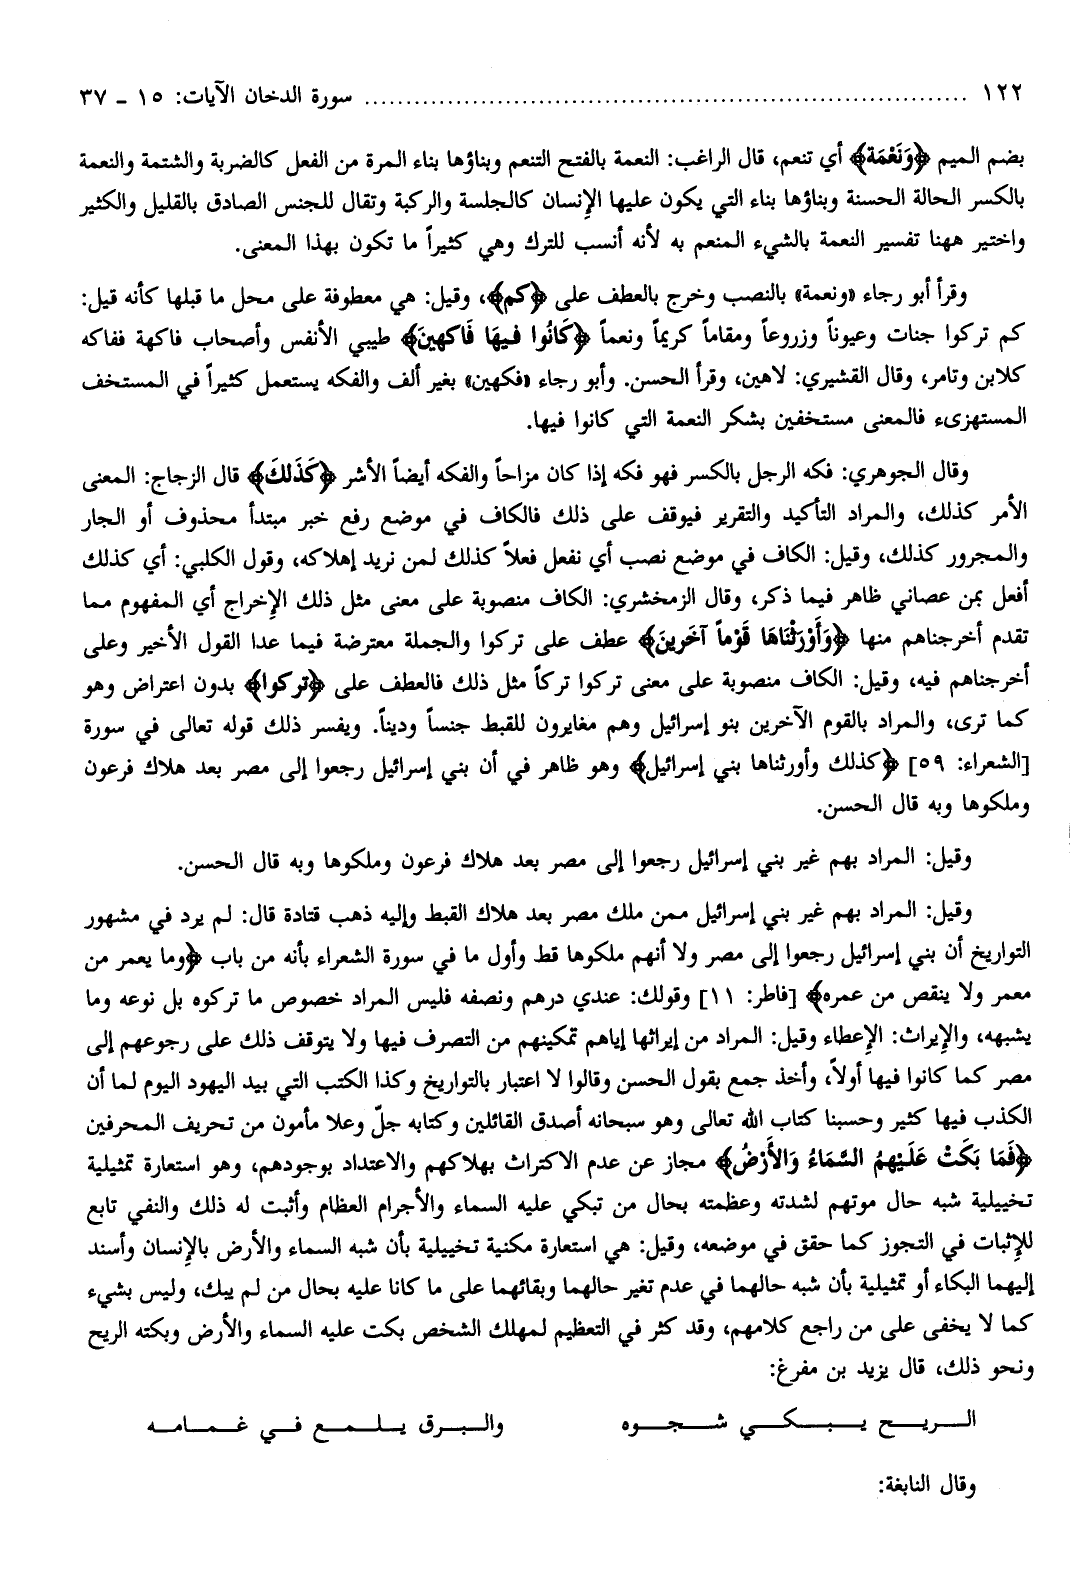 ١٢٢ ........................................ سورة الدخان الآيات: ١٥ - ٣٧
بضم الميم ﴿وَنَعْمَة﴾ أي تنعم، قال الراغب: النعمة بالفتح التنعم وبناؤها بناء المرة من الفعل كالضربة والشتمة والنعمة
بالكسر الحالة الحسنة وبناؤها بناء التي يكون عليها الإنسان كالجلسة والركبة وتقال للجنس الصادق بالقليل والكثير
واختير ههنا تفسير النعمة بالشيء المنعم به لأنه أنسب للترك وهي كثيراً ما تكون بهذا المعنى.
وقرأ أبو رجاء «ونعمة» بالنصب وخرج بالعطف على ﴿كم﴾، وقيل: هي معطوفة على محل ما قبلها كأنه قيل:
كم تركوا جنات وعيوناً وزروعاً ومقاماً كريماً ونعماً ﴿كَانُوا فيهَا فَاكهينَ﴾ طيبي الأنفس وأصحاب فاكهة ففاكه
كلابن وتامر، وقال القشيري: لاهين، وقرأ الحسن. وأبو رجاء «فكهين» بغير ألف والفكه يستعمل كثيراً في المستخف
المستهزىء فالمعنى مستخفين بشكر النعمة التي كانوا فيها.
وقال الجوهري: فكه الرجل بالكسر فهو فكه إذا كان مزاحاً والفكه أيضاً الأشر ﴿كَذَلكَ﴾ قال الزجاج: المعنى
الأمر كذلك، والمراد التأكيد والتقرير فيوقف على ذلك فالكاف في موضع رفع خبر مبتدأ محذوف أو الجار
والمجرور كذلك، وقيل: الكاف في موضع نصب أي نفعل فعلاً كذلك لمن نريد إهلاكه، وقول الكلبي: أي كذلك
أفعل بمن عصاني ظاهر فيما ذكر، وقال الزمخشري: الكاف منصوبة على معنى مثل ذلك الإخراج أي المفهوم مما
تقدم أخرجناهم منها ﴿وَأَوْرَثْنَاهَا قَوْماً آخَرينَ﴾ عطف على تركوا والجملة معترضة فيما عدا القول الأخير وعلى
أخرجناهم فيه، وقيل: الكاف منصوبة على معنى تركوا تركاً مثل ذلك فالعطف على ﴿تركوا﴾ بدون اعتراض وهو
كما ترى، والمراد بالقوم الآخرين بنو إسرائيل وهم مغايرون للقبط جنساً وديناً. ويفسر ذلك قوله تعالى في سورة
[الشعراء: ٥٩] ﴿كذلك وأورثناها بني إسرائيل﴾ وهو ظاهر في أن بني إسرائيل رجعوا إلى مصر بعد هلاك فرعون
وملكوها وبه قال الحسن.
وقيل: المراد بهم غير بني إسرائيل رجعوا إلى مصر بعد هلاك فرعون وملكوها وبه قال الحسن.
وقيل: المراد بهم غير بني إسرائيل ممن ملك مصر بعد هلاك القبط وإليه ذهب قتادة قال: لم يرد في مشهور
التواريخ أن بني إسرائيل رجعوا إلى مصر ولا أنهم ملكوها قط وأول ما في سورة الشعراء بأنه من باب ﴿وما يعمر من
معمر ولا ينقص من عمره﴾ [فاطر: ١١] وقولك: عندي درهم ونصفه فليس المراد خصوص ما تركوه بل نوعه وما
يشبهه، والإيراث: الإعطاء وقيل: المراد من إيراثها إياهم تمكينهم من التصرف فيها ولا يتوقف ذلك على رجوعهم إلى
مصر كما كانوا فيها أولاً، وأخذ جمع بقول الحسن وقالوا لا اعتبار بالتواريخ وكذا الكتب التي بيد اليهود اليوم لما أن
الكذب فيها كثير وحسبنا كتاب الله تعالى وهو سبحانه أصدق القائلين وكتابه جلّ وعلا مأمون من تحريف المحرفين
﴿فَمَا بَكَتْ عَلَيْهمُ السَّمَاءُ وَالأَرْضُ﴾ مجاز عن عدم الاكتراث بهلاكهم والاعتداد بوجودهم، وهو استعارة تمثيلية
تخييلية شبه حال موتهم لشدته وعظمته بحال من تبكي عليه السماء والأجرام العظام وأثبت له ذلك والنفي تابع
للإثبات في التجوز كما حقق في موضعه، وقيل: هي استعارة مكنية تخييلية بأن شبه السماء والأرض بالإنسان وأسند
إليهما البكاء أو تمثيلية بأن شبه حالهما في عدم تغير حالهما وبقائهما على ما كانا عليه بحال من لم يبك، وليس بشيء
كما لا يخفى على من راجع كلامهم، وقد كثر في التعظيم لمهلك الشخص بكت عليه السماء والأرض وبكته الريح
ونحو ذلك، قال يزيد بن مفرغ:
الريح يبكي شجوه والبرق يلمع في غمامه
وقال النابغة: